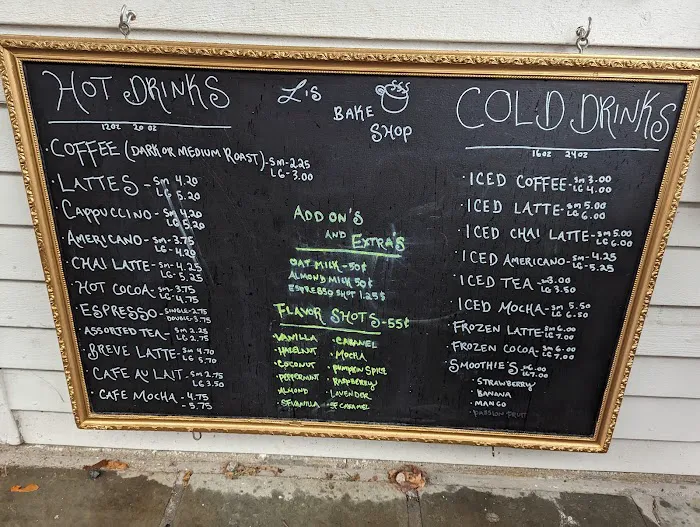 HOT DRINKS
12oz 20 oz
COFFEE (DARK OR MEDIUM ROAST) - SM - 2.25
LG - 3.00
LATTES - SM 4.20
LG 5.20
CAPPUCCINO - SM 4.20
LG 5.20
AMERICANO - SM - 3.75
LG - 4.20
CHAI LATTE - SM - 4.25
LG - 5.25
HOT COCOA - SM - 3.75
LG - 4.75
ESPRESSO - SINGLE - 2.75
DOUBLE - 3.75
ASSORTED TEA - SM 2.25
LG 2.75
BREVE LATTE - SM 4.70
LG 5.70
CAFE AU LAIT - SM 2.75
LG 3.50
CAFE MOCHA - 4.75
- 5.75
L'S
BAKE
SHOP
ADD ON'S
AND EXTRA'S
OAT MILK - 50¢
ALMOND MILK 50¢
ESPRESSO SHOT 1.25$
FLAVOR SHOTS - 55¢
VANILLA · CARAMEL
HAZELNUT · MOCHA
COCONUT · PUMPKIN SPICE
PEPPERMINT · RASPBERRY
ALMOND · LAVENDER
SF VANILLA · SF CARAMEL
COLD DRINKS
16oz 24oz
· ICED COFFEE - SM 3.00
LG 4.00
· ICED LATTE - SM 5.00
LG 6.00
· ICED CHAI LATTE - SM 5.00
LG 6.00
· ICED AMERICANO - SM - 4.25
LG - 5.25
· ICED TEA - 3.00
LG 3.50
· ICED MOCHA - SM 5.50
LG 6.50
FROZEN LATTE - SM 6.00
LG 7.00
FROZEN COCOA - SM - 6.00
LG - 7.00
SMOOTHIE'S SM 6.00
LG 7.00
· STRAWBERRY
· BANANA
· MANGO
· PASSION FRUIT